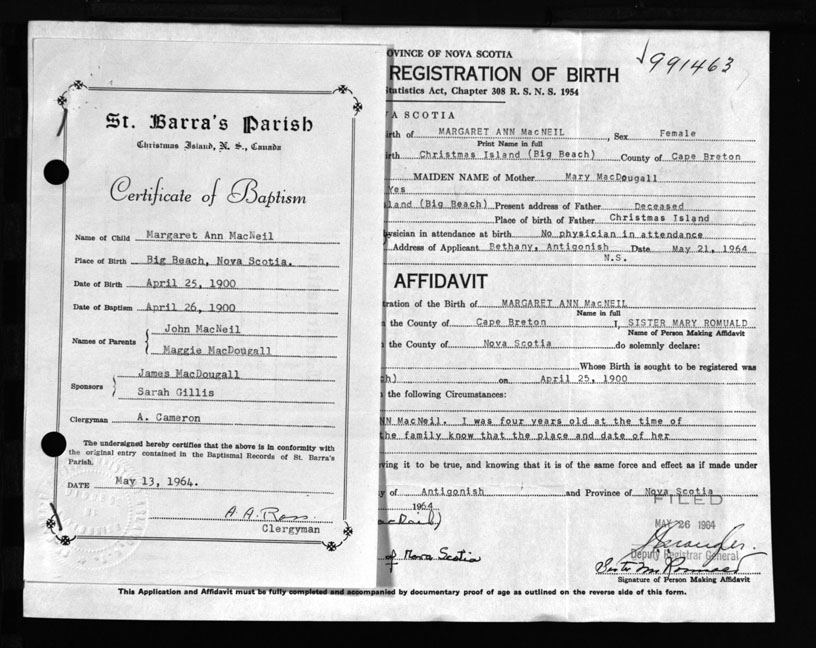 St. Barra's Parish
Christmas Island, N. S., Canada
Certificate of Baptism
Name of Child Margaret Ann MacNeil
Place of Birth Big Beach, Nova Scotia.
Date of Birth April 25, 1900
Date of Baptism April 26, 1900
Names of Parents John MacNeil
Maggie MacDougall
Sponsors James MacDougall
Sarah Gillis
Clergyman A. Cameron
The undersigned hereby certifies that the above is in conformity with
the original entry contained in the Baptismal Records of St. Barra's
Parish.
DATE May 13, 1964.
A. A. Ross.
Clergyman
OVINCE OF NOVA SCOTIA
991463
REGISTRATION OF BIRTH
tatistics Act, Chapter 308 R. S. N. S. 1954
A SCOTIA
irth of MARGARET ANN MacNEIL, Sex Female
Print Name in full
irth Christmas Island (Big Beach) County of Cape Breton
MAIDEN NAME of Mother Mary MacDougall
Yes
land (Big Beach) Present address of Father Deceased
Place of birth of Father Christmas Island
ysician in attendance at birth No physician in attendance
Address of Applicant Bethany, Antigonish Date May 21, 1964
N.S.
AFFIDAVIT
tration of the Birth of MARGARET ANN MacNEIL
Name in full
n the County of Cape Breton I, SISTER MARY ROMUALD
Name of Person Making Affidavit
n the County of Nova Scotia do solemnly declare:
Whose Birth is sought to be registered was
ch) on April 25, 1900
n the following Circumstances:
NN MacNeil. I was four years old at the time of
the family know that the place and date of her
ving it to be true, and knowing that it is of the same force and effect as if made under
y of Antigonish and Province of Nova Scotia
FILED
1964
MAY 26 1964
Deputy Registrar General
of Nova Scotia
Sister M. Romuald
Signature of Person Making Affidavit
This Application and Affidavit must be fully completed and accompanied by documentary proof of age as outlined on the reverse side of this form.